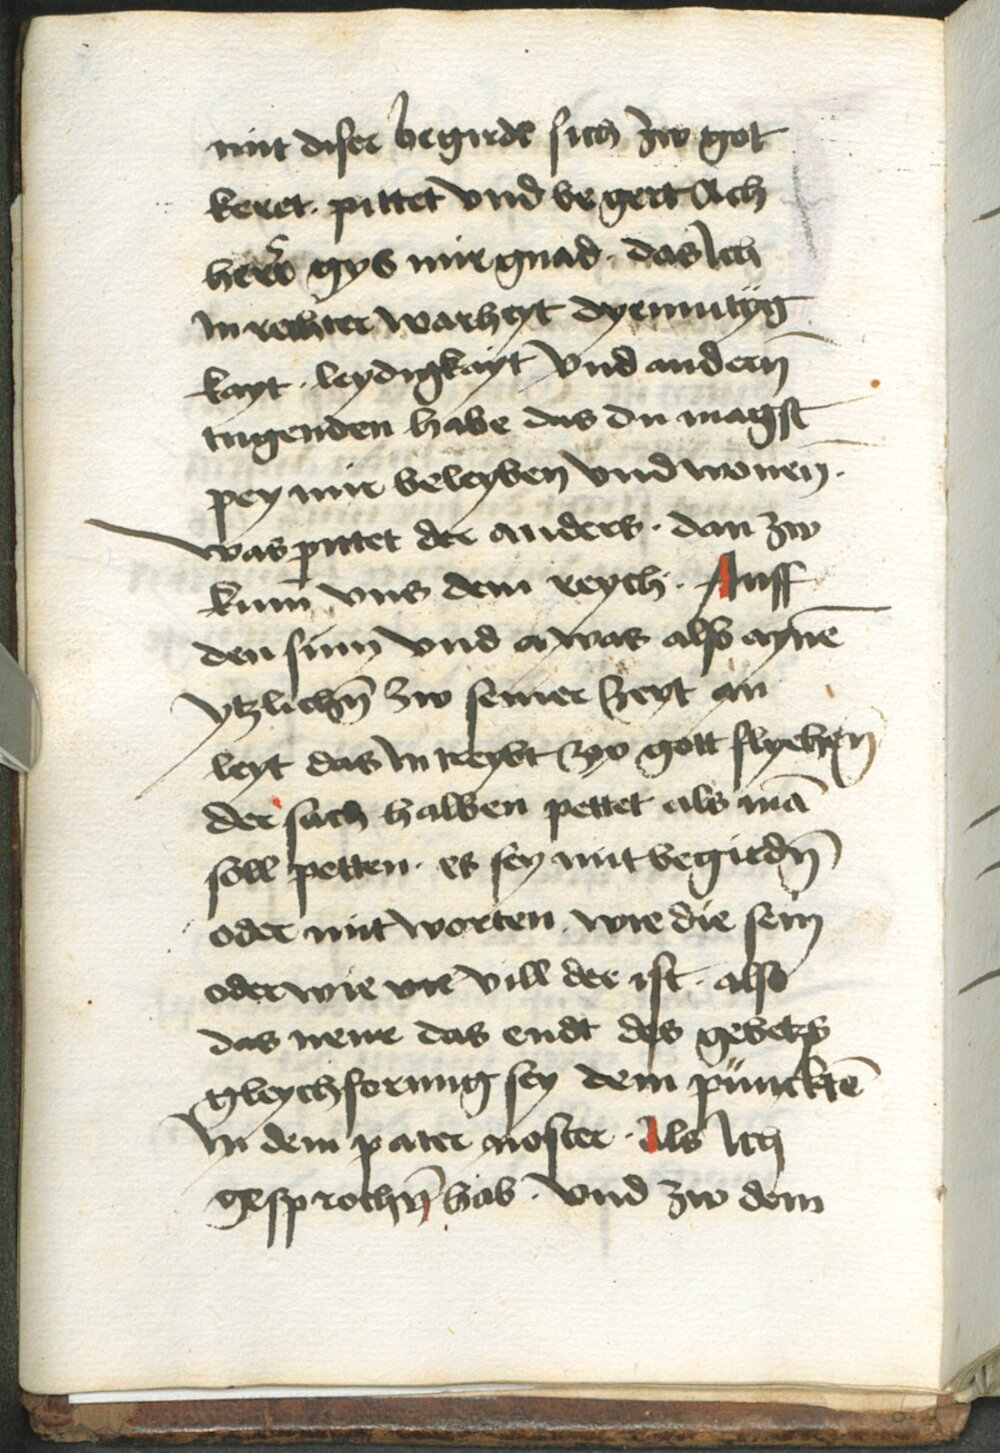 mit diser begirde sich zw got
keret . pittet vnd begert Ach
herr gyb mir gnad . das Ich
In rechter warheyt dyemutyg
kayt . leydigkayt vnd andern̄
tugenden habe das du magst
pey mir beleyben vnd wonen̄ .
was pittet der anders . dan zw
kum vns dein reych . Auff
den sinn vnd a was also ayne̅
ytzlichn̄ zw seiner Zeyt an
leyt das In treybt zw gott flyehen̄
der sach halben pettet als ma̅
soll petten . es sey mit begirdn̄
oder mit worten . wie die sein
oder wie vie vill der ist . also
das neur das endt des gebetz
gleychformig sey dem pünckte̅
In dem pater noster . Als Ich
gesprochn̄ hab . vnd zw dem